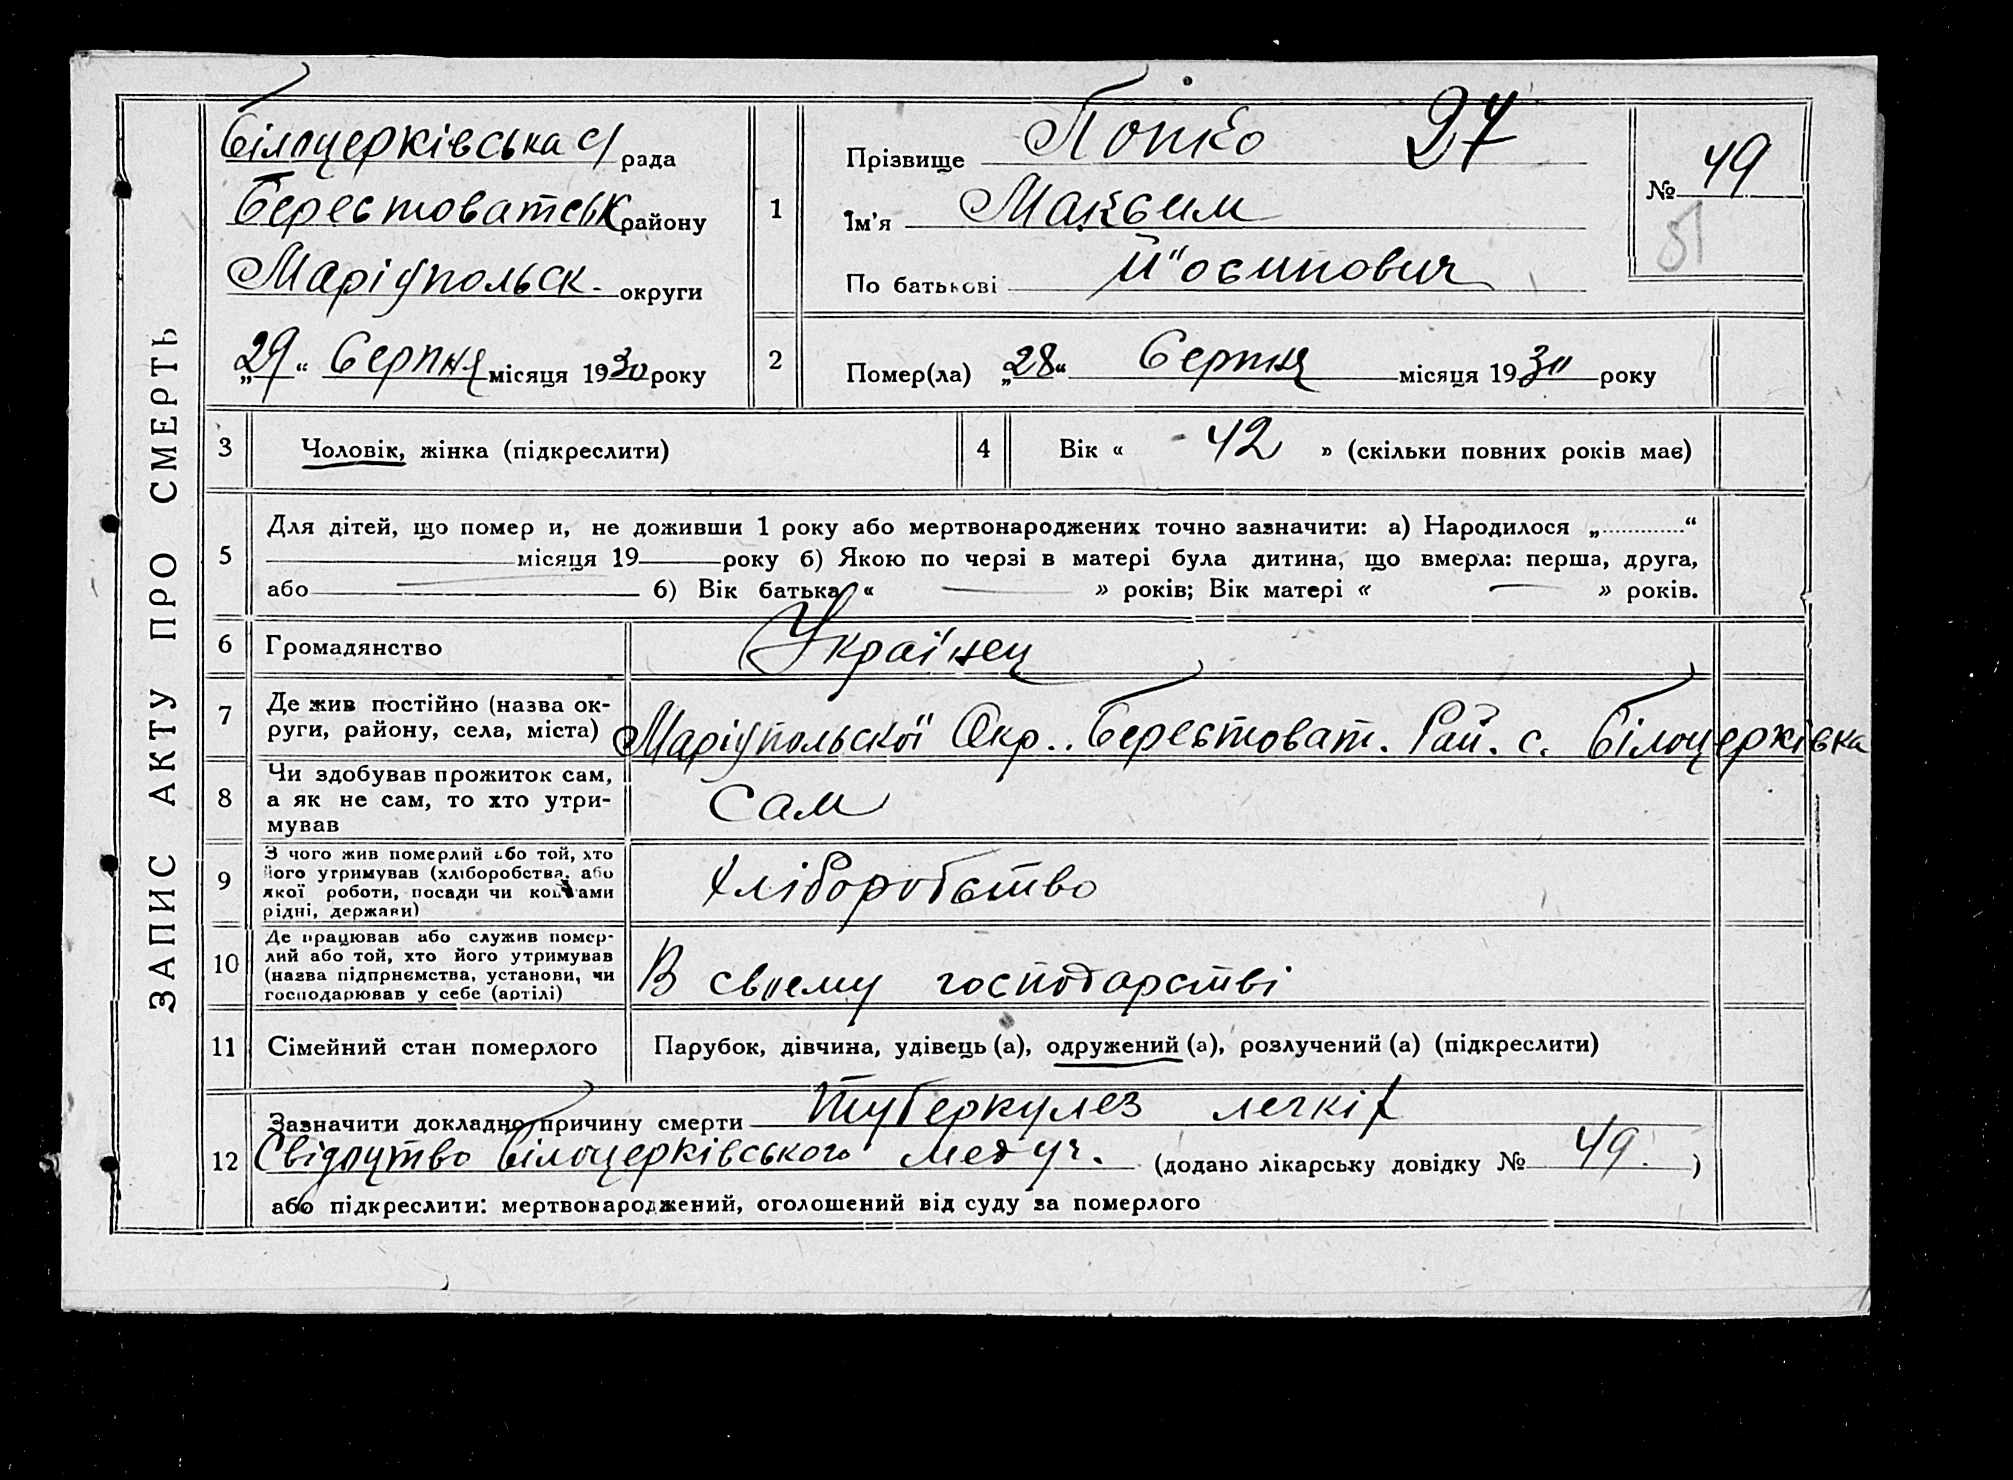 ЗАПИС АКТУ ПРО СМЕРТЬ
Білоцерківська с/рада
Берестоватськ району
Маріупольск. округи
„29“ Серпня місяця 1930 року
1
Прізвище Попко 27
Ім'я Максим
По батькові Й"осипович
№ 49
2
Помер(ла) „28“ Серпня місяця 1930 року
3 Чоловік, жінка (підкреслити)
4 Вік « 42 » (скільки повних років має)
5
Для дітей, що помер и, не доживши 1 року або мертвонароджених точно зазначити: а) Народилося „..............“
місяця 19 року б) Якою по черзі в матері була дитина, що вмерла: перша, друга,
або б) Вік батька « — » років; Вік матері « — » років.
6 Громадянство Українец
7
Де жив постійно (назва ок-
руги, району, села, міста)
Маріупольскої Окр.. Берестоват. Рай. с. Білоцерківка
8
Чи здобував прожиток сам,
а як не сам, то хто утри-
мував
Сам
9
З чого жив померлий або той, хто
його утримував (хліборобства, або
якої роботи, посади чи коштами
рідні, держави)
Хліборобство
10
Де працював або служив помер-
лий або той, хто його утримував
(назва підприємства, установи, чи
господарював у себе (артілі)
В своему господарстві
11 Сімейний стан померлого
Парубок, дівчина, удівець (а), одружений (а), розлучений (а) (підкреслити)
12
Зазначити докладно причину смерти Туберкулез легкіх
Свідоцтво Білоцерківського медуч. (додано лікарську довідку № 49. )
або підкреслити: мертвонароджений, оголошений від суду за померлого